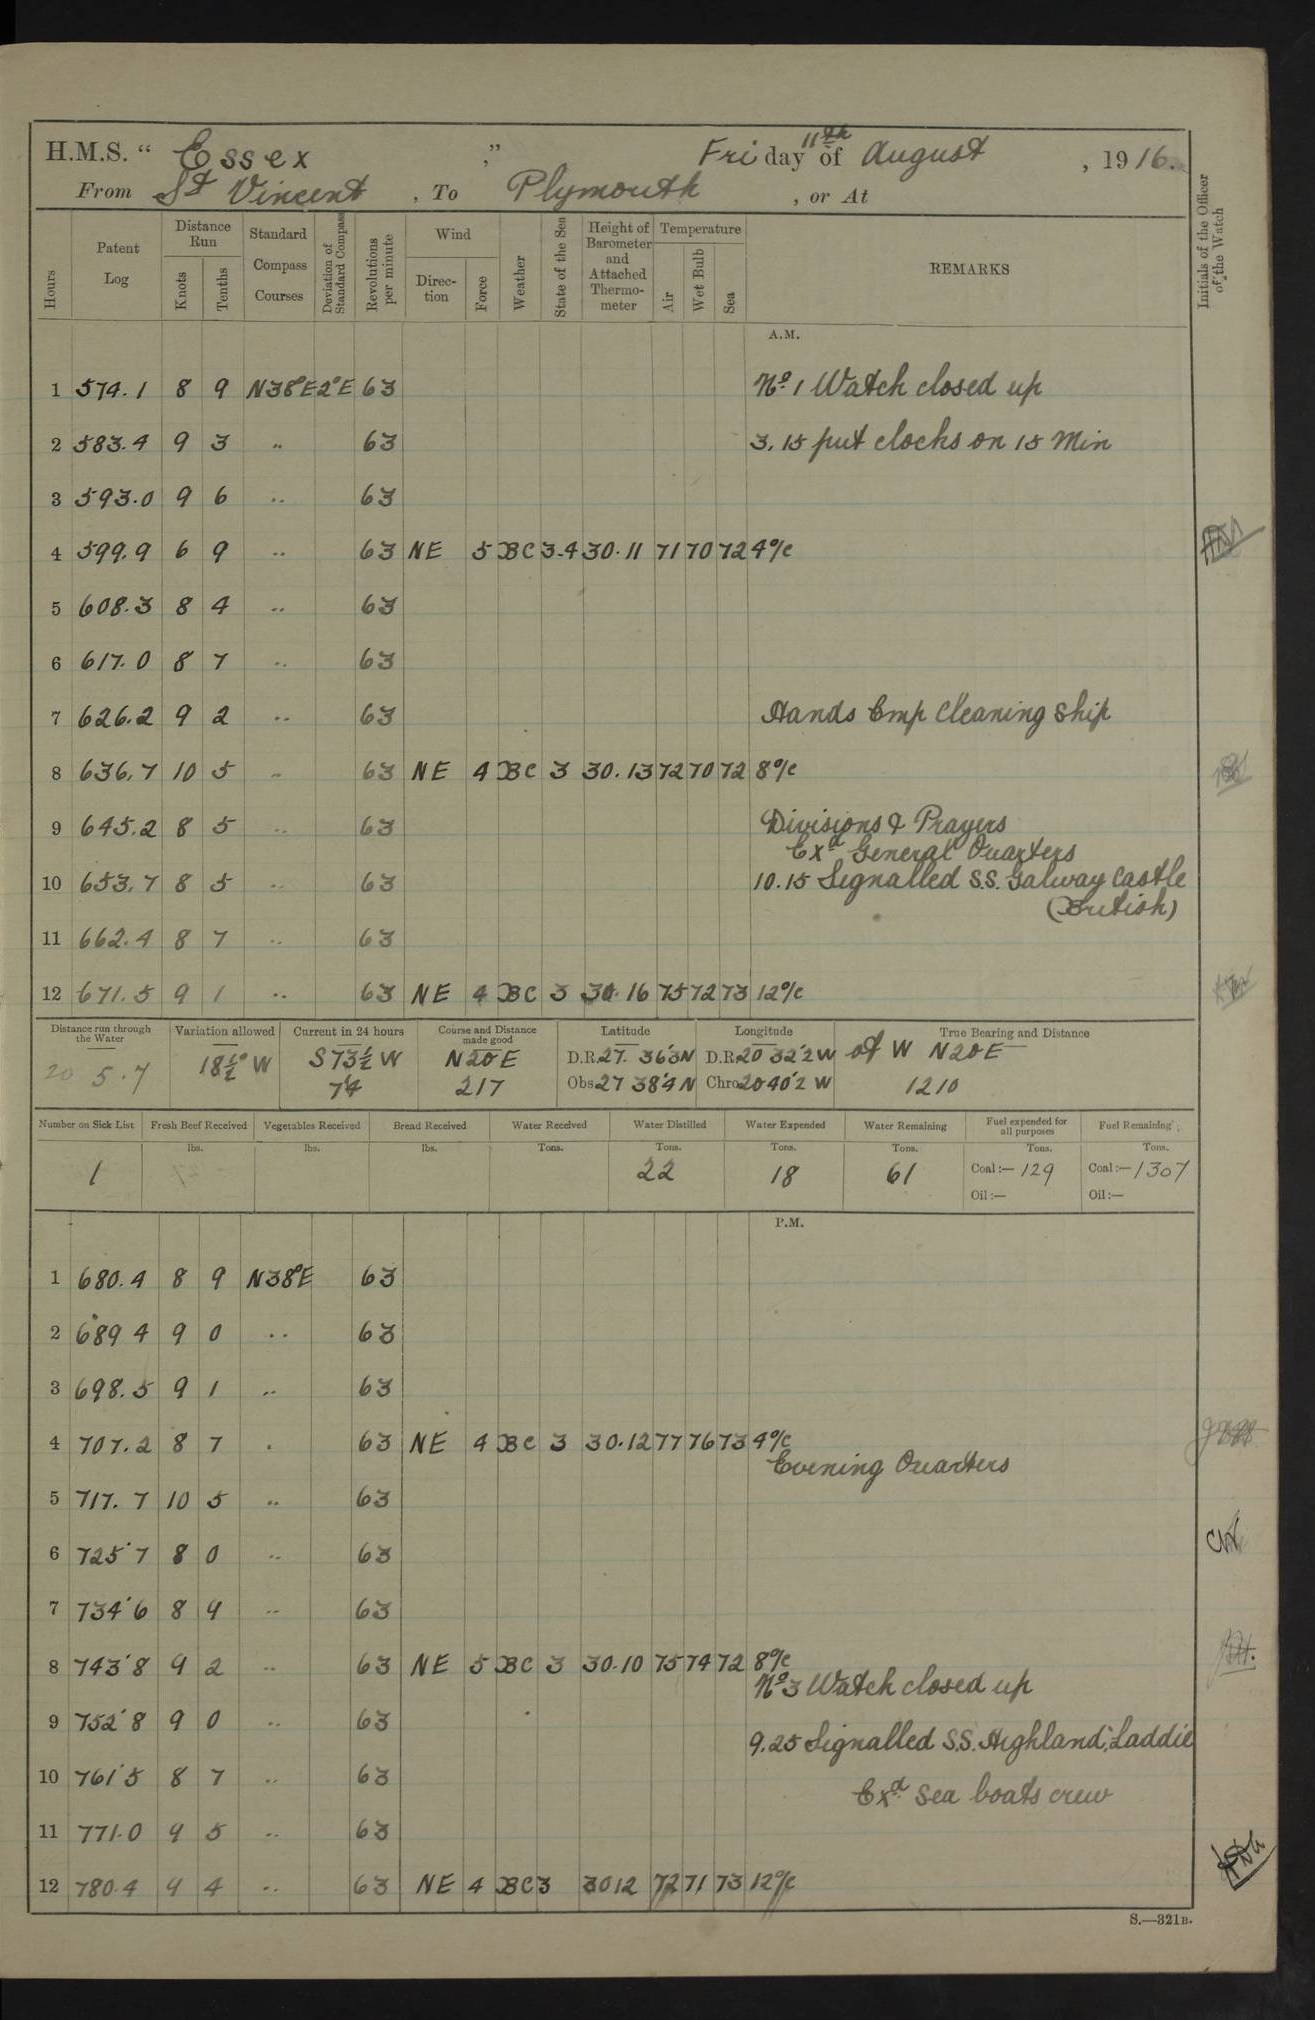 H.M.S. " Essex ," Friday 11th of August , 1916.
From St Vincent , To Plymouth , or At
Hours Patent Log Distance Run Knots Tenths Standard Compass Courses Deviation of Standard Compass Revolutions per minute Wind Direc-tion Force Weather State of the Sea Height of Barometer and Attached Thermo-meter Temperature Air Wet Bulb Sea REMARKS Initials of the Officer of the Watch
A.M.
1 574.1 8 9 N38°E 2°E 63 No. 1 Watch closed up
2 583.4 9 3 " 63 3.15 put clocks on 15 Min
3 593.0 9 6 " 63
4 599.9 6 9 " 63 NE 5 BC 3-4 30.11 71 70 72 4°/c
5 608.3 8 4 " 63
6 617.0 8 7 " 63
7 626.2 9 2 " 63 Hands Emp Cleaning Ship
8 636.7 10 5 " 63 NE 4 BC 3 30.13 72 70 72 8°/c
9 645.2 8 5 " 63 Divisions & Prayers
Exd General Quarters
10 653.7 8 5 " 63 10.15 Signalled S.S. Galway Castle
(British)
11 662.4 8 7 " 63
12 671.5 9 1 " 63 NE 4 BC 3 30.16 75 72 73 12°/c
Distance run through the Water Variation allowed Current in 24 hours Course and Distance made good Latitude Longitude True Bearing and Distance
205.7 18½° W S73½W 74 N20E 217 D.R. 27. 36'3N D.R. 20 32'2W of W N20E
Obs 27 38'4N Chro 20 40'2 W 1210
Number on Sick List Fresh Beef Received Vegetables Received Bread Received Water Received Water Distilled Water Expended Water Remaining Fuel expended for all purposes Fuel Remaining
lbs. lbs. lbs. Tons. Tons. Tons. Tons. Tons. Tons.
1 22 18 61 Coal:— 129 Coal:— 1307
Oil:— Oil:—
P.M.
1 680.4 8 9 N38°E 63
2 689 4 9 0 " 63
3 698.5 9 1 " 63
4 707.2 8 7 " 63 NE 4 BC 3 30.12 77 76 73 4°/c
Evening Quarters
5 717.7 10 5 " 63
6 725.7 8 0 " 63
7 734.6 8 9 " 63
8 743.8 9 2 " 63 NE 5 BC 3 30.10 75 74 72 8°/c
No. 3 Watch closed up
9 752.8 9 0 " 63
9.25 Signalled S.S. Highland Laddie
10 761.5 8 7 " 63 Exd Sea boats crew
11 771.0 9 5 " 63
12 780.4 9 4 " 63 NE 4 BC 3 30 12 72 71 73 12°/c
S.—321B.